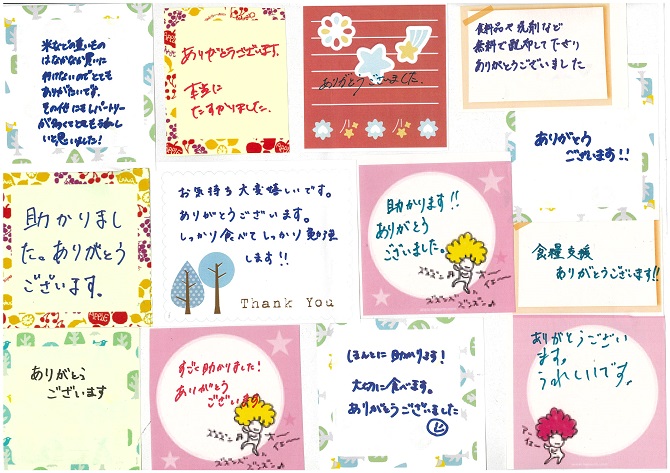 米などの重いもの
はなかなか買いに
行けないのでとても
ありがたいです。
その他にもレパートリー
が多くてとてもうれし
いと思いました!
ありがとうございます。
本当に
たすかりました。
ありがとうございました。
食料品や洗剤など
無料で配布して下さり
ありがとうございました
ありがとう
ございます!!
助かりまし
た。ありがとう
ございます。
お気持ち大変嬉しいです。
ありがとうございます。
しっかり食べてしっかり勉強
します!!
Thank You
助かります!!
ありがとう
ございました。
ズンズン
ズンズンズン
ズンズン
食糧支援
ありがとうございます!!
ありがとう
ございます
すごく助かりました!
ありがとう
ございます
ズンズン
イェー
ズンズンズン
ズンズン
ほんとに助かります!
大切に食べます。
ありがとうございました
ありがとうござい
ます。
うれしいです。
イェー